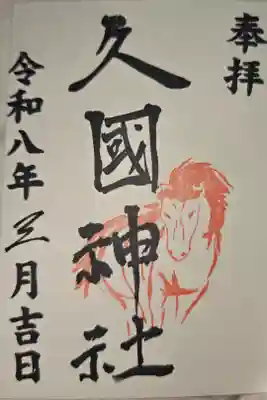 奉拝
久國神社
令和八年三月吉日